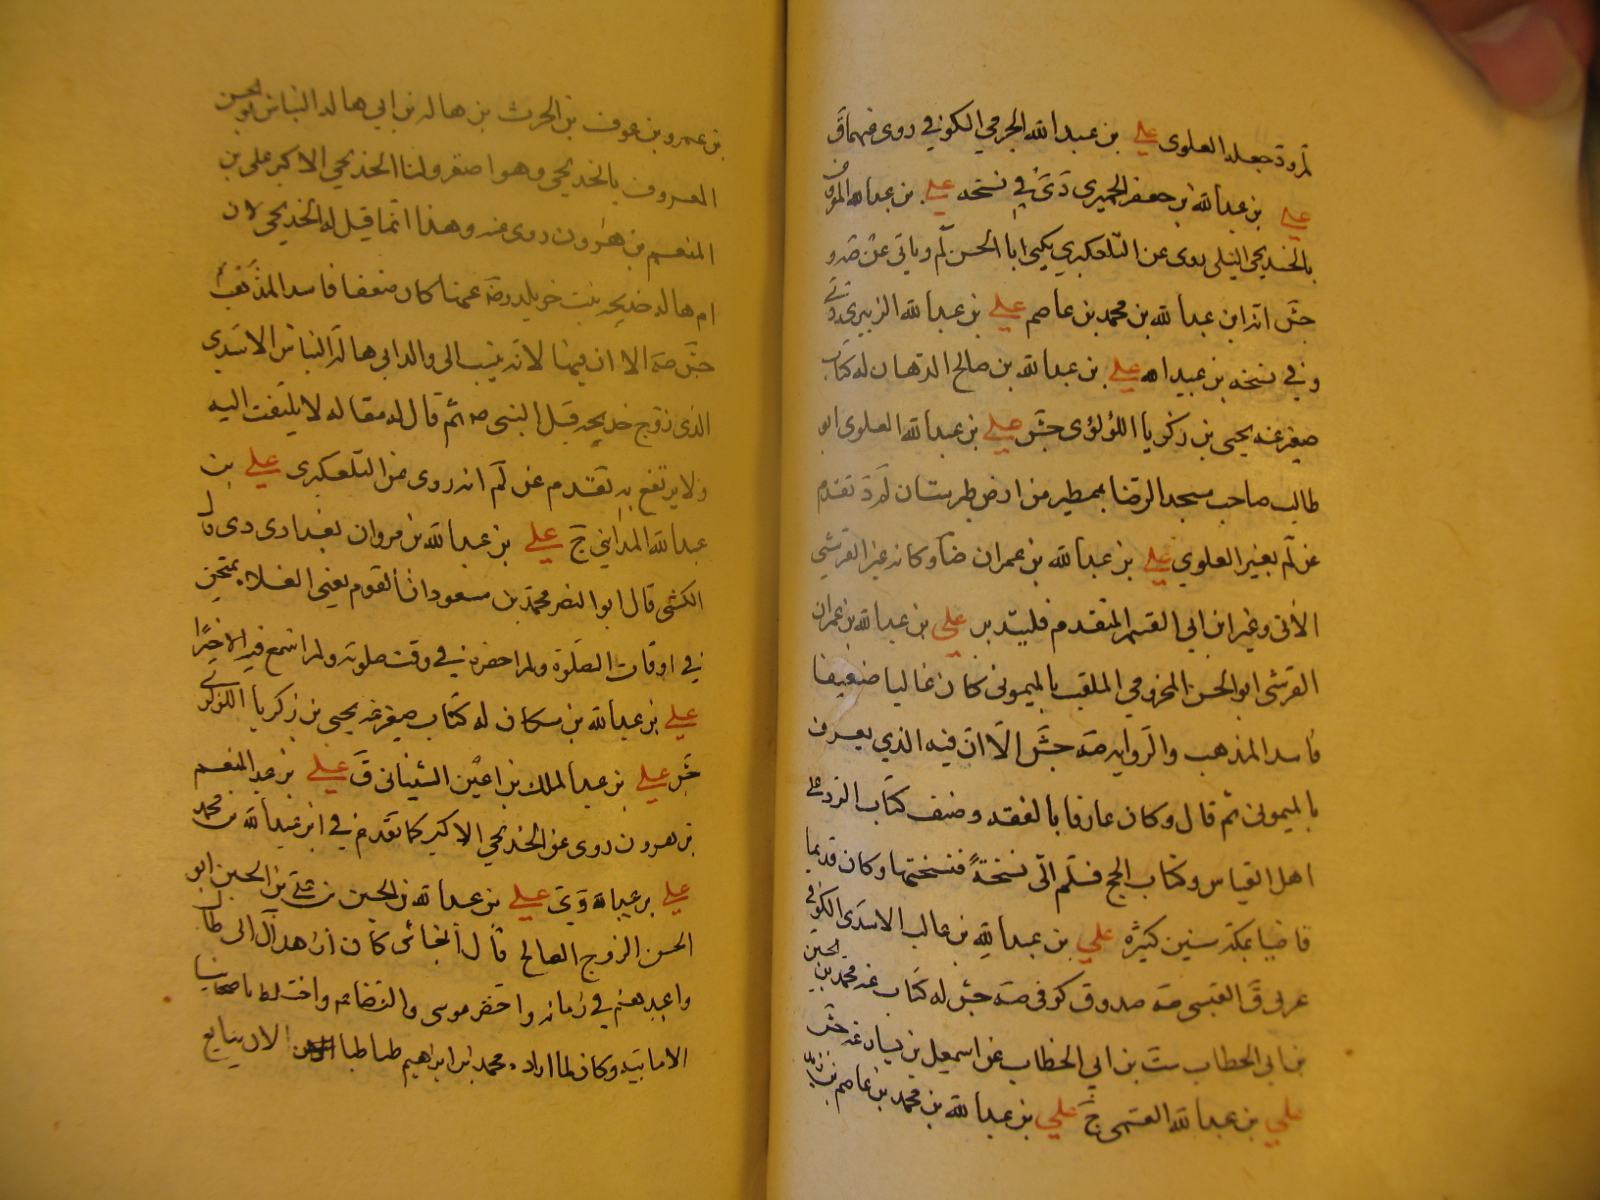 لم ود جعله العلوي علي بن عبدالله الجرمي الكوفي روى عنهما ق
علي بن عبدالله بن جعفر الحميري في نسخه علي بن عبدالله المعروف
بالخديجي النيلي روى عن التلعكبري يكنى ابا الحسن لم وياتي عن
جش انه ابن عبدالله بن محمد بن عاصم علي بن عبدالله الزبيري
وفي نسخه بن عبيداه علي بن عبدالله بن صالح الدهان له كتاب
صغر عنه يحيى بن زكريا اللؤلؤى جش علي بن عبدالله العلوى ابو
طالب صاحب مسجد الرضا بمطير من ارض طبرستان لم د تقدم
عن لم بعير العلوي علي بن عبدالله بن عمران ضا وكانه غير القرشي
الاتي وغير ابن ابي القسم المتقدم فليتدبر علي بن عبدالله بن عمران
القرشى ابو الحسن المخزومي الملقب بالميمونى كان غاليا ضعيفا
فاسد المذهب والروايه صه جش الا ان فيه الذي يعرف
بالميمونى ثم قال وكان عارفا بالفقه وصنف كتاب الرد على
اهل القياس وكتاب الحج فسلم الى نسخة فنسختها وكان قديما
قاضيا بمكه سنين كثيره علي بن عبدالله بن غالب الاسدى الكوفي
عربى ق القيسى صه صدوق كوفى صه جش له كتاب عنه محمد بن الحسين
بن ابي الخطاب ست بن ابي الخطاب عن اسمعيل بن يسار عنه جش
علي بن عبدالله القمى ج علي بن عبدالله بن محمد بن عاصم بن زيد
بن عمرو بن عوف بن الحرث بن هاله بن ابي هاله النباش ابو الحسن
المعروف بالخديجي وهو اصغر ولنا الخديجي الاكبر على بن
المنعم بن هرون روى عنه وهذا انما قيل له الخديجي لان
ام هاله خديجه بنت خويلد رضه عمنا كان ضعفا فاسد المذهب
جش صه الا ان فيهما لانه ينسب الى والد ابي هاله النباش الاسدي
الذى زوج خديجه قبل النبى صه ثم قال له مقاله لا يلتفت اليه
ولا يرتفع به تقدم عن لم انه روى عن التلعكبرى علي بن
عبدالله المدايني ج علي بن عبدالله بن مروان بغدادى دى قا
الكشى قال ابو النضر محمد بن مسعود ان القوم يعني الغلاه يمتحن
في اوقات الصلوة ولم احضره في وقت صلوته ولم اسمع فيه الا خيرا
علي بن عبدالله بن مسكان له كتاب صغر عنه يحيى بن زكريا اللؤلؤى
جش علي بن عبدالملك بن اعين الشيبانى ق علي بن عبد المنعم
بن هرون روى عن الخديجي الاكبر كما تقدم في ابن عبدالله بن محمد
علي بن عبيدالله علي بن عبدالله بن الحسين بن علي بن الحسين ابو
الحسن الزوج الصالح قال النجاشى كان ازهد آل ابى طالب
واعبدهم في زمانه واختص موسى والرضا عم واختلط باصحابنا
الاماميه وكان لما اراده محمد بن ابراهيم طباطبا لان يبايع